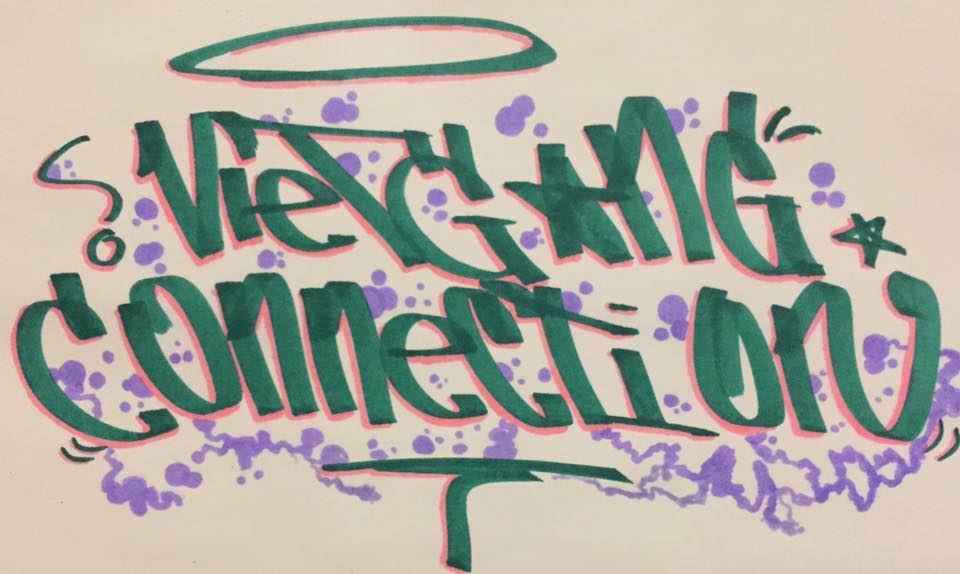 VieTGANG
Connection
T